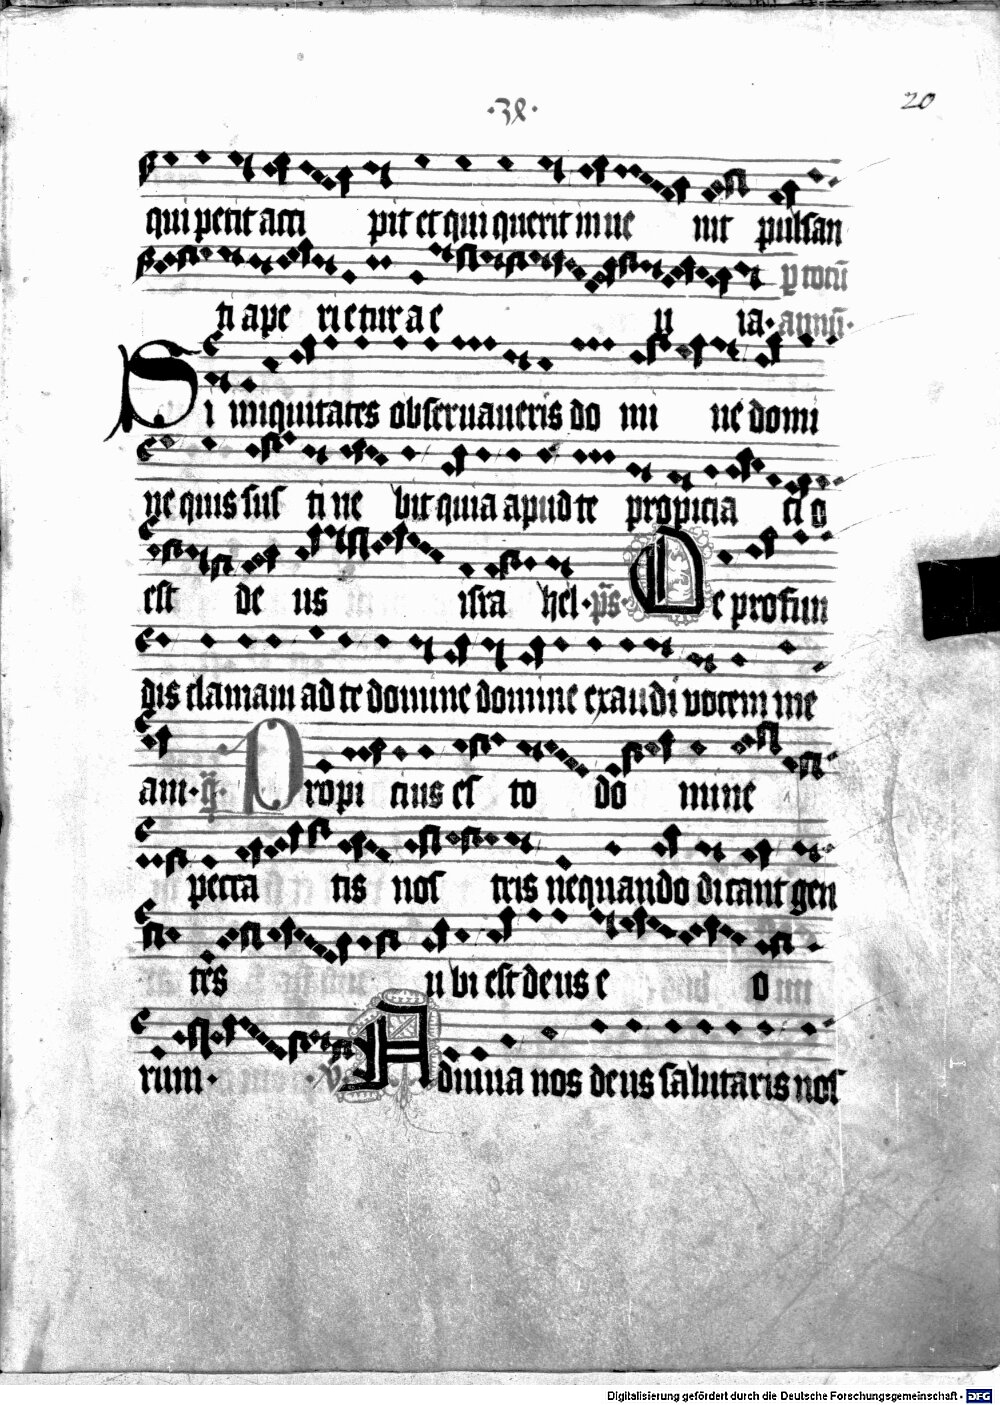 ·38·
20
qui petit acci pit et qui querit inue nit pulsan
ti ape rietur a e u ia·
Si iniquitates obseruaueris do mi ne domi
ne quis sus ti ne bit quia apud te propicia ci o
est de us isra hel· ps· De profun
dis clamaui ad te domine domine exaudi vocem me
am· Propi cius es to do mine
pecca tis nos tris nequando dicant gen
tes u bi est deus e o
rum· V Adiuua nos deus salutaris nos
Digitalisierung gefördert durch die Deutsche Forschungsgemeinschaft - DFG